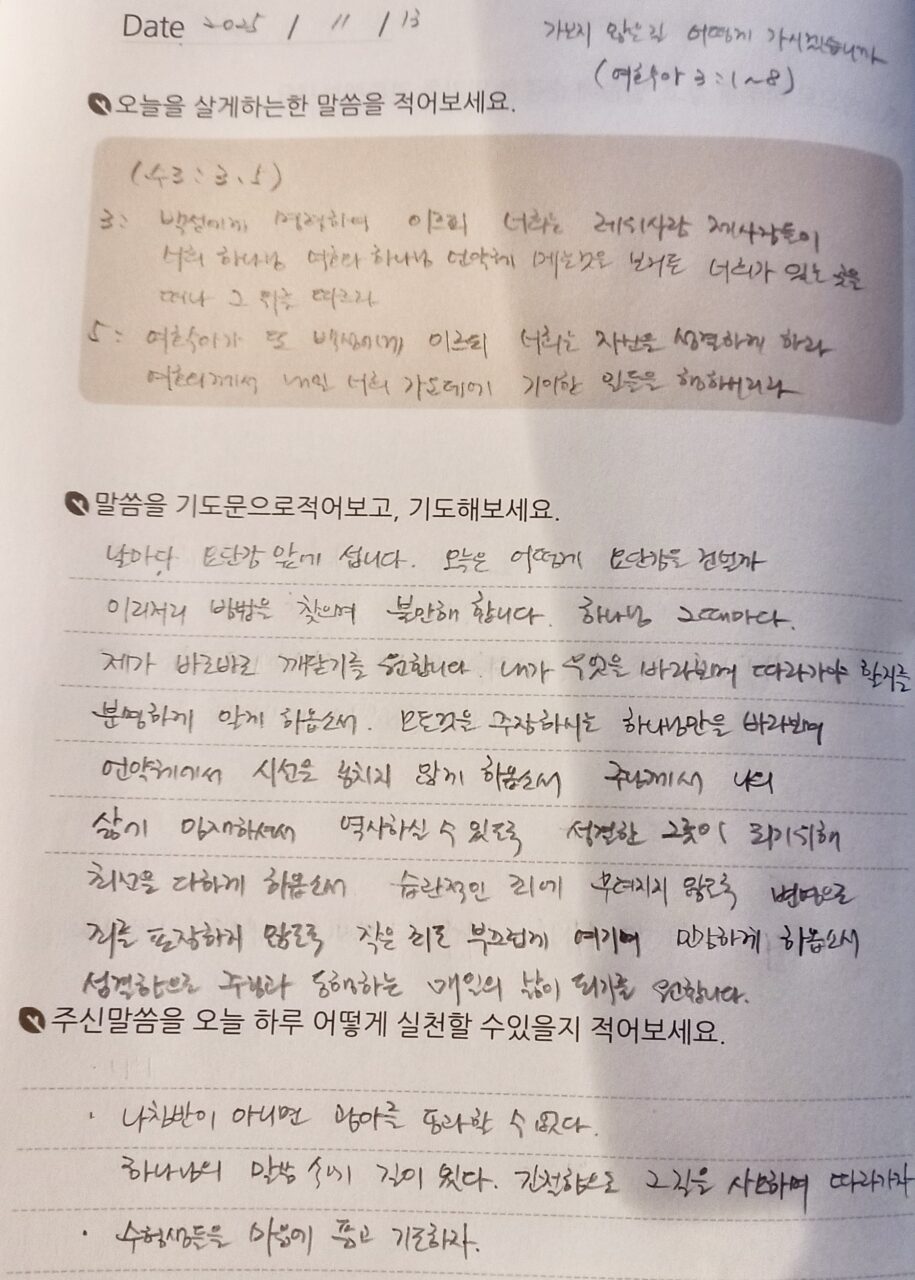 Date 2025 / 11 / 13
가보지 않은 길 어떻게 가시겠습니까
(여호수아 3:1~8)
오늘을 살게하는한 말씀을 적어보세요.
(수3:3、5)
3: 백성에게 명령하여 이르되 너희는 레위사람 제사장들이
너희 하나님 여호와 하나님 언약궤 메는것을 보거든 너희가 있는 곳을
떠나 그 뒤를 따르라
5: 여호수아가 또 백성에게 이르되 너희는 자신을 성결하게 하라
여호와께서 내일 너희 가운데에 기이한 일들을 행하시리라
말씀을 기도문으로적어보고, 기도해보세요.
날마다 요단강 앞에 섭니다. 오늘은 어떻게 요단강을 건널까
이리저리 방법을 찾으며 불안해 합니다. 하나님 그때마다.
제가 바로바로 깨닫기를 원합니다. 내가 무엇을 바라보며 따라가야 할지를
분명하게 알게 하옵소서. 모든것을 주장하시는 하나님만을 바라보며
언약궤에서 시선을 놓치지 않게 하옵소서 주님께서 나의
삶에 임재하셔서 역사하실 수 있도록 성결한 그릇이 되기위해
최선을 다하게 하옵소서 습관적인 죄에 무뎌지지 않도록 변명으로
죄를 포장하지 않도록 작은 죄도 부끄럽게 여기며 민감하게 하옵소서
성결함으로 주님과 동행하는 매일의 삶이 되기를 원합니다.
주신말씀을 오늘 하루 어떻게 실천할 수있을지 적어보세요.
· 나침반이 아니면 광야를 통과할 수 없다.
하나님의 말씀 속에 길이 있다. 간절함으로 그길을 사모하며 따라가자
· 수험생들을 마음에 품고 기도하자.